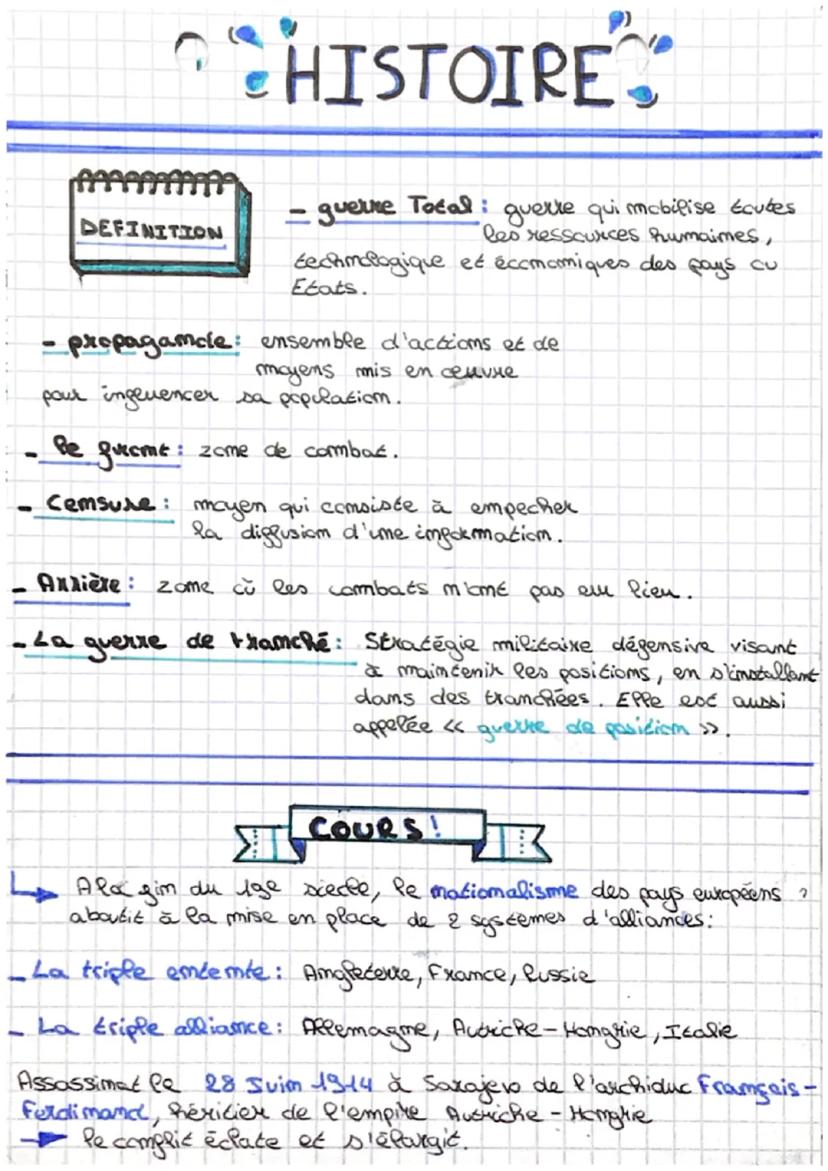 HISTOIRE
DEFINITION
- guerre Total : guerre qui mobilise toutes
les ressources humaines,
technologique et économiques des pays ou
Etats.
- propagande : ensemble d'actions et de
moyens mis en œuvre
pour influencer sa population.
- le front : zone de combat.
- Censure : moyen qui consiste à empecher
la diffusion d'une information.
- Arrière : zone où les combats n'ont pas eu lieu.
- La guerre de tranché : Stratégie militaire défensive visant
à maintenir les positions, en s'installant
dans des tranchées. Elle est aussi
appelée << guerre de position >>.
COURS !
A la fin du 19e siecle, le nationalisme des pays européens
aboutit à la mise en place de 2 systemes d'alliances :
- La triple entente : Angleterre, France, Russie
- La triple alliance : Allemagne, Autriche - Hongrie, Italie
Assassinat le 28 Juin 1914 à Sarajevo de l'archiduc François -
Ferdinand, héritier de l'empire Autriche - Hongrie
le conflit éclate et s'élargit.